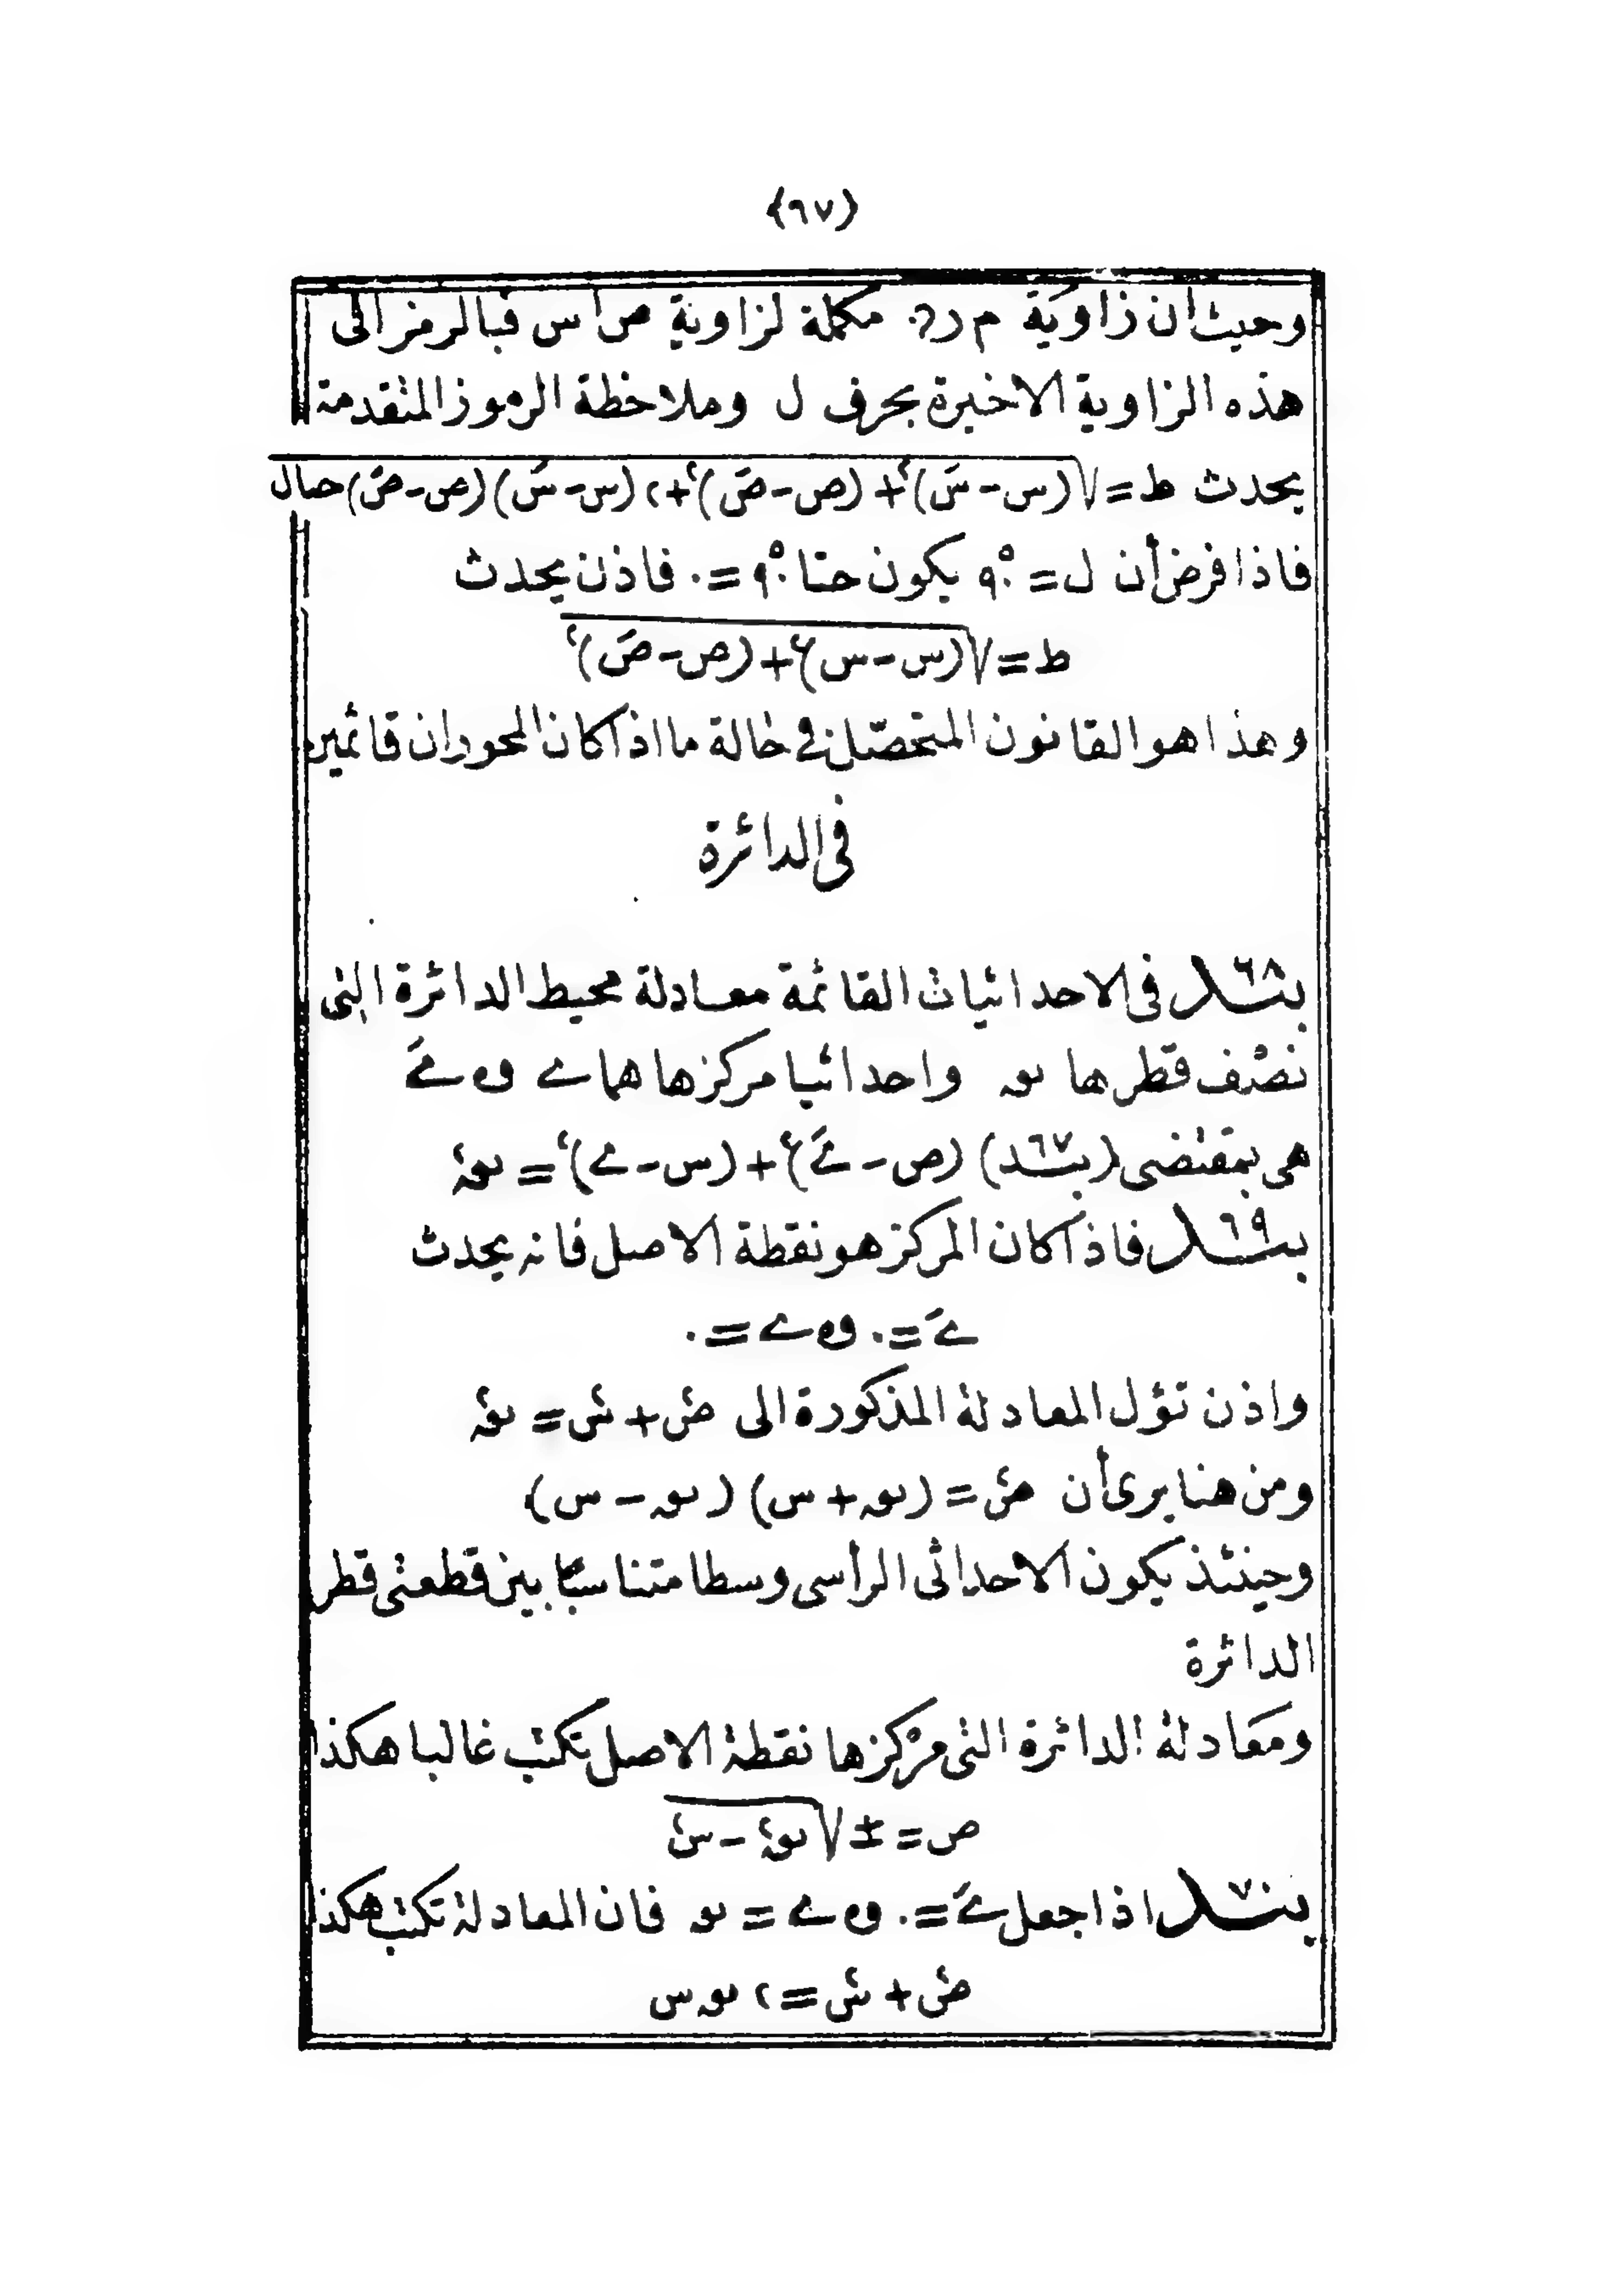 (٦٧)
وحيث ان زاوية م ر مكملة لزاوية ص ا س فبالرمز الى
هذه الزاوية الاخيرة بحرف ل وملاحظة الرموز المتقدمة
يحدث ط = √(س - سَ)٢ + (ص - صَ)٢ + ٢(س - سَ)(ص - صَ) حتال
فاذا فرض أن ل = ٩٠° يكون حتا ٩٠° = ٠ فاذن يحدث
ط = √(س - س)٢ + (ص - صَ)٢
وهذا هو القانون المتحصل في حالة ما اذا كان المحوران قائمين
فى الدائرة
بند ٦٨ فى الاحداثيات القائمة معادلة محيط الدائرة التى
نصف قطرها نوه واحداثيا مركزها هما ے و ےَ
هى بمقتضى (بند ٦٧) (ص - ےَ)٢ + (س - ے)٢ = نوه٢
بند ٦٩ فاذا كان المركز هو نقطة الاصل فانه يحدث
ےَ = ٠ و ے = ٠
واذن تؤل المعادلة المذكورة الى ص٢ + س٢ = نوه٢
ومن هنا يرى أن ص٢ = (نوه + س) (نوه - س)
وحينئذ يكون الاحداثى الرأسى وسطا متناسبًا بين قطعتى قطر
الدائرة
ومعادلة الدائرة التى مركزها نقطة الاصل تكتب غالبا هكذا
ص = ± √نوه٢ - س٢
بند ٧٠ اذا جعل ےَ = ٠ و ے = نوه فان المعادلة تكتب هكذا
ص٢ + س٢ = ٢ نوه س